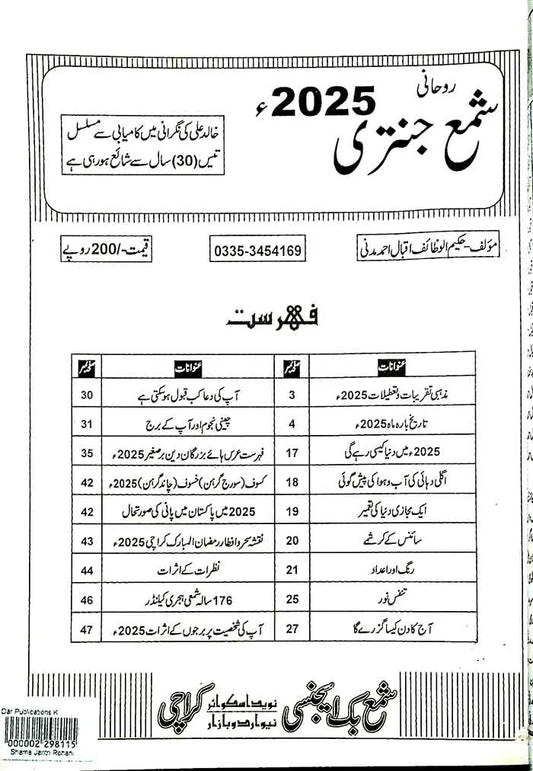 روحانی
شمع جنتری
2025ء
خالد علی کی نگرانی میں کامیابی سے مسلسل
تیس (30) سال سے شائع ہو رہی ہے
مؤلف۔حکیم الوظائف اقبال احمد مدنی
0335-3454169
قیمت-/200 روپے
فہرست
عنوانات صفحہ نمبر عنوانات صفحہ نمبر
مذہبی تقریبات و تعطیلات 2025ء 3 آپ کی دعا کب قبول ہو سکتی ہے 30
تاریخ بارہ ماہ 2025ء 4 چینی نجوم اور آپ کے برج 31
2025ء میں دنیا کیسی رہے گی 17 فہرست عرس ہائے بزرگان دین برصغیر 2025ء 35
اگلی دہائی کی آب و ہوا کی پیش گوئی 18 کسوف (سورج گرہن) خسوف (چاند گرہن) 2025ء 42
ایک مجازی دنیا کی تعمیر 19 2025 میں پاکستان میں پانی کی صورتحال 42
سائنس کے کرشمے 20 نقشہ سحر و افطار رمضان المبارک کراچی 2025ء 43
رنگ اور اعداد 21 نظرات کے اثرات 44
تنفس نور 25 176 سالہ شمسی ہجری کیلنڈر 46
آج کا دن کیسا گزرے گا 27 آپ کی شخصیت پر برجوں کے اثرات 2025ء 47
شمع بک ایجنسی
نوید اسکوائر
نیو اردو بازار
کراچی
Dar Publications K
000002 298115
Shama Jantri Rohani